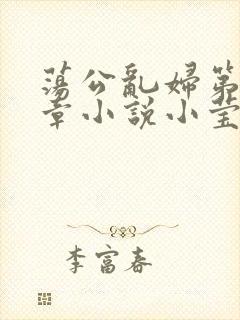 蕩公亂婦第
章小説小莹
李富春